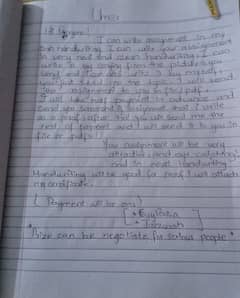 Umar
Hi Everyone!
I can write assignment in my
own handwriting. I can write your assignment
in very neat and clean handwriting. I can
write it by copying from the picture you
send and I can also write it by myself
just send me the topic. I will send
your assignment to you in file/pdf.
I will take half payment in advance and
send you search & assignment that I write
as a proof after that you will send me the
rest of payment and I will send it to you in
file or pdf!
You assignment will be very
attractive and eye catching
and in neat handwriting
Handwriting will be good for proof I will attach
my certificate.
(Payment will be on)
• Easypaisa
• Jazzcash
"Prize can be negotiate for serious people"